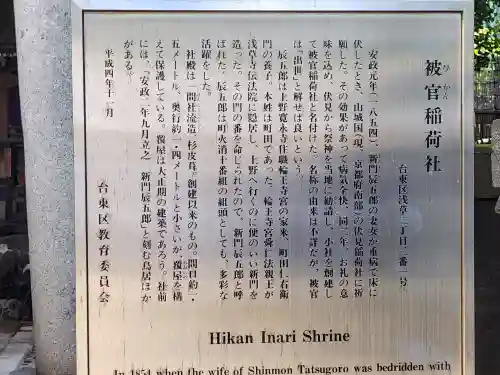 被官稲荷社
ひかん
台東区浅草二丁目三番一号
安政元年(一八五四)、新門辰五郎の妻女が重病で床に
伏したとき、山城国(現、京都府南部)の伏見稲荷社に祈
願した。その効果があって病気全快、同二年、お礼の意
味を込め、伏見から祭神を当地に勧請し、小社を創建し
て被官稲荷社と名付けた。名称の由来は不詳だが、被官
は「出世」と解せば良いという。
辰五郎は上野寛永寺住職輪王寺宮の家来、町田仁右衛
門の養子。本姓は町田であった。輪王寺宮舜仁法親王が
浅草寺伝法院に隠居し、上野へ行くのに便のいい新門を
造った。その門の番を命じられたので、新門辰五郎と呼
ばれた。辰五郎は町火消十番組の組頭としても、多彩な
活躍をした。
社殿は一間社流造、杉皮葺。創建以来のもの。間口約一・
五メートル、奥行約一・四メートルと小さいが、覆屋を構
えて保護している。覆屋は大正期の建築であろう。社前
には、「安政二年九月立之 新門辰五郎」と刻む鳥居ほか
がある。
平成四年十一月
台東区教育委員会
Hikan Inari Shrine
In 1854 when the wife of Shinmon Tatsugoro was bedridden with